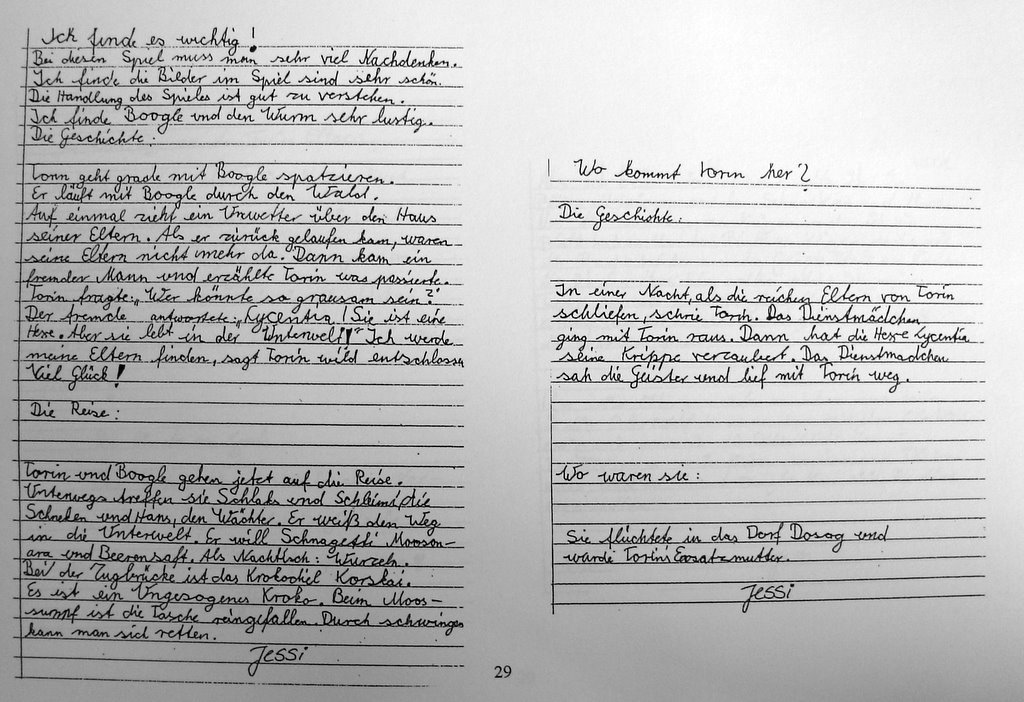 Ich finde es wichtig!
Bei diesen Spiel muss man sehr viel Nachdenken.
Ich finde die Bilder im Spiel sind sehr schön.
Die Handlung des Spieles ist gut zu verstehen.
Ich finde Boogle und den Wurm sehr lustig.
Die Geschichte:
Torin geht grade mit Boogle spatzieren.
Er läuft mit Boogle durch den Wald.
Auf einmal zieht ein Unwetter über den Haus
seiner Eltern. Als er zürück gelaufen kam, waren
seine Eltern nicht mehr da. Dann kam ein
fremder Mann und erzählte Torin was passierte.
Torin fragte: „Wer könnte so grausam sein?"
Der fremde antwortete: „Lycentia! Sie ist eine
Hexe. Aber sie lebt in der Unterwelt!" Ich werde
meine Eltern finden, sagt Torin wild entschlossn
Viel Glück!
Die Reise:
Torin und Boogle gehen jetzt auf die Reise.
Unterwegs treffen sie Schlaks und Schleimi die
Schneken und Hans, den Wächter. Er weiß den Weg
in die Unterwelt. Er will Schnagetti Mooson-
ara und Beerensaft. Als Nachtisch: Wurzeln.
Bei der Zugbrücke ist das Krokodiel Korskai.
Es ist ein Ungesogenes Kroko. Beim Moos-
sumpf ist die Tasche reingefallen. Durch schwingen
kann man sich retten.
Jessi
Wo kommt Torin her?
Die Geschichte:
In einer Nacht, als die reichen Eltern von Torin
schliefen, schrie Torin. Das Dienstmädchen
ging mit Torin raus. Dann hat die Hexe Lycentia
seine Krippe verzaubert. Das Dienstmädchen
sah die Geister und lief mit Torin weg.
Wo waren sie:
Sie flüchtete in das Dorf Dosag und
warde Torins Ersatzmutter.
Jessi
29